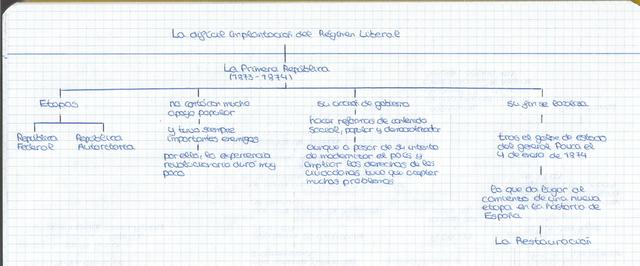 La difícil implantación del Régimen Liberal
La Primera República
(1873-1874)
Etapas
República
Federal
República
Autoritaria
no contarían mucho
apoyo popular
y tuvo siempre
importantes enemigos
por ello, la experiencia
revolucionaria duró muy
poco
su acción de gobierno
hacer reformas de contenido
social, popular y democratizador
aunque a pesar de su intento
de modernizar el país y
ampliar los derechos de los
ciudadanos tuvo que
muchos problemas
su fin se localiza
tras el golpe de estado
del general Pavía el
4 de enero de 1874
lo que da lugar al
comienzo de una nueva
etapa en la historia de
España
La Restauración